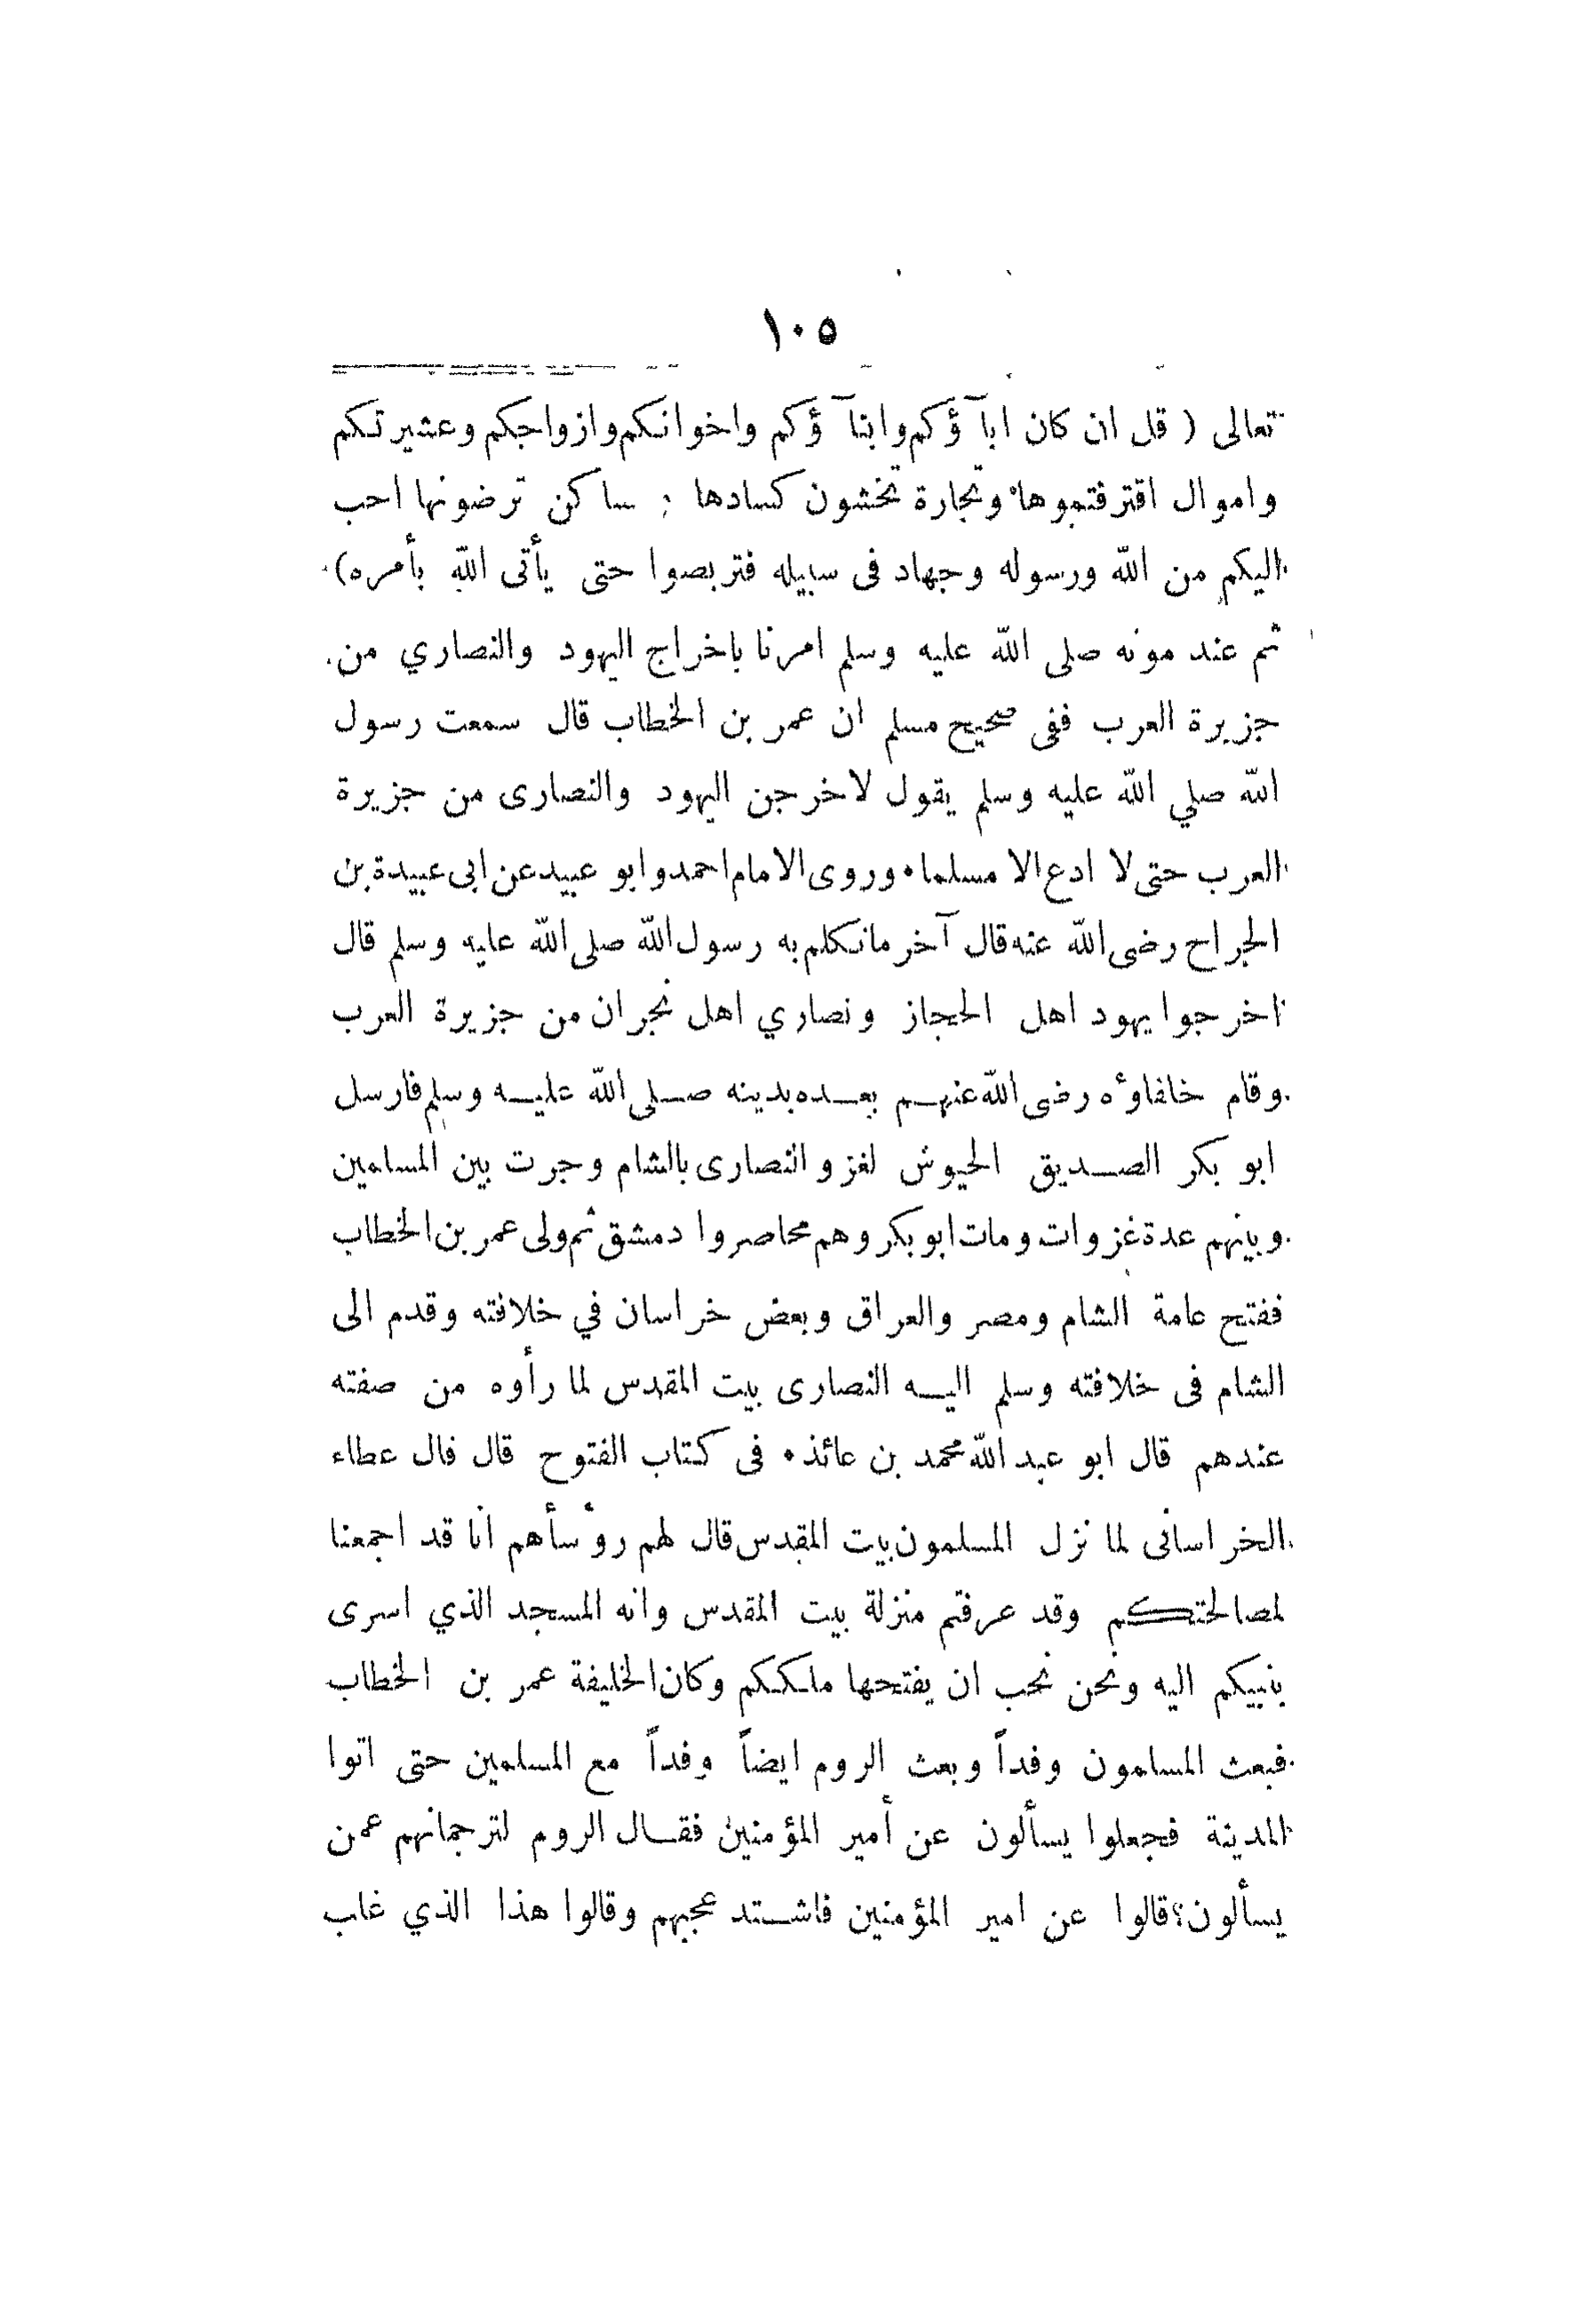 ١٠٥
تعالى ( قل ان كان اباۤ ؤكم وابناۤ ؤكم واخوانكم وازواجكم وعشيرتكم
واموال اقترفتموها وتجارة تخشون كسادها ساكن ترضونها احب
اليكم من الله ورسوله وجهاد فى سبيله فتربصوا حتى يأتى الله بأمره)
ثم عند موته صلى الله عليه وسلم امرنا باخراج اليهود والنصاري من
جزيرة العرب ففى صحيح مسلم ان عمر بن الخطاب قال سمعت رسول
الله صلي الله عليه وسلم يقول لاخرجن اليهود والنصارى من جزيرة
العرب حتى لا ادع الا مسلما • وروى الامام احمد وابو عبيد عن ابى عبيدة بن
الجراح رضى الله عنه قال آخر ماتكلم به رسول الله صلى الله عليه وسلم قال
اخرجوا يهود اهل الحجاز ونصاري اهل نجران من جزيرة العرب
وقام خلفاؤه رضى الله عنهم بعده بدينه صلى الله عليه وسلم فارسل
ابو بكر الصديق الجيوش لغزو النصارى بالشام وجرت بين المسلمين
وبينهم عدة غزوات ومات ابو بكر وهم محاصروا دمشق ثم ولى عمر بن الخطاب
ففتح عامة الشام ومصر والعراق وبعض خراسان في خلافته وقدم الى
الشام فى خلافته وسلم اليه النصارى بيت المقدس لما رأوه من صفته
عندهم قال ابو عبد الله محمد بن عائذ • فى كتاب الفتوح قال قال عطاء
الخراسانى لما نزل المسلمون بيت المقدس قال لهم رؤسأهم انا قد اجمعنا
لمصالحتكم وقد عرفتم منزلة بيت المقدس وانه المسجد الذي اسرى
بنبيكم اليه ونحن نحب ان يفتحها ملككم وكان الخليفة عمر بن الخطاب
فبعث المسلمون وفداً وبعث الروم ايضاً وفداً مع المسلمين حتى اتوا
المدينة فجعلوا يسألون عن أمير المؤمنين فقال الروم لترجمانهم عمن
يسألون؟ قالوا عن امير المؤمنين فاشتد عجبهم وقالوا هذا الذي غلب